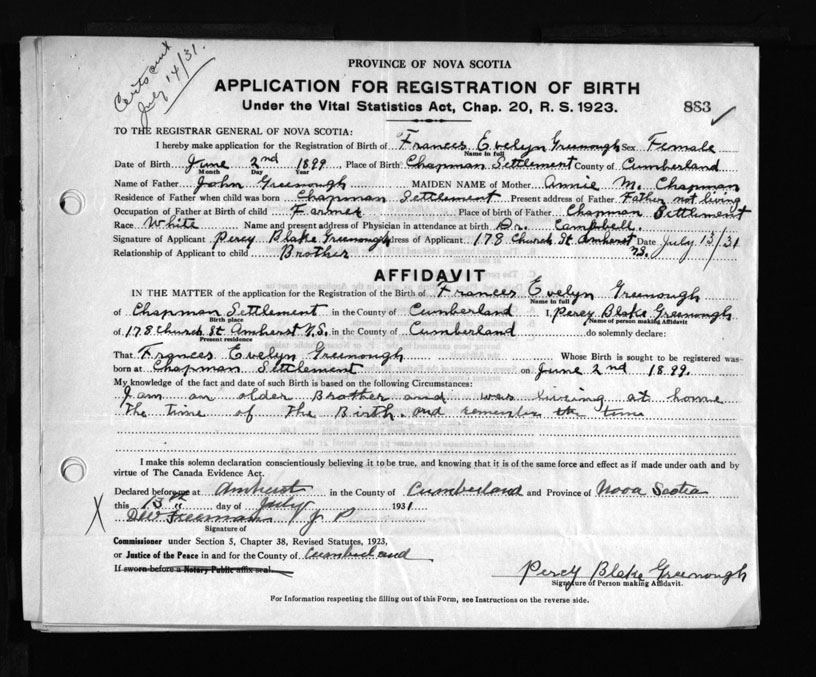 Certs sent
July 14/31.
PROVINCE OF NOVA SCOTIA
APPLICATION FOR REGISTRATION OF BIRTH
Under the Vital Statistics Act, Chap. 20, R. S. 1923.
883 ✓
TO THE REGISTRAR GENERAL OF NOVA SCOTIA:
I hereby make application for the Registration of Birth of Frances Evelyn Greenough Sex Female
Name in full
Date of Birth June 2nd 1899 Place of Birth Chapman Settlement County of Cumberland
Month Day Year
Name of Father John Greenough MAIDEN NAME of Mother Annie M. Chapman
Residence of Father when child was born Chapman Settlement Present address of Father Father not living
Occupation of Father at Birth of child Farmer Place of birth of Father Chapman Settlement
Race White Name and present address of Physician in attendance at birth Dr. Campbell.
Signature of Applicant Percy Blake Greenough Address of Applicant 178 Church St. Amherst Date July 13/31
N.S.
Relationship of Applicant to child Brother
AFFIDAVIT
IN THE MATTER of the application for the Registration of the Birth of Frances Evelyn Greenough
Name in full
of Chapman Settlement in the County of Cumberland I, Percy Blake Greenough
Birth place Name of person making Affidavit
of 178 Church St Amherst N.S. in the County of Cumberland do solemnly declare:
Present residence
That Frances Evelyn Greenough Whose Birth is sought to be registered was
born at Chapman Settlement on June 2nd 1899.
My knowledge of the fact and date of such Birth is based on the following Circumstances:
I am an older Brother and was living at home
the time of the Birth. and remember the time
I make this solemn declaration conscientiously believing it to be true, and knowing that it is of the same force and effect as if made under oath and by
virtue of The Canada Evidence Act.
Declared before me at Amherst in the County of Cumberland and Province of Nova Scotia
this 13th day of July 1931
X Freeman J P
Signature of
Commissioner under Section 5, Chapter 38, Revised Statutes, 1923,
or Justice of the Peace in and for the County of Cumberland
If sworn before a Notary Public affix seal.
Percy Blake Greenough
Signature of Person making Affidavit.
For Information respecting the filling out of this Form, see Instructions on the reverse side.